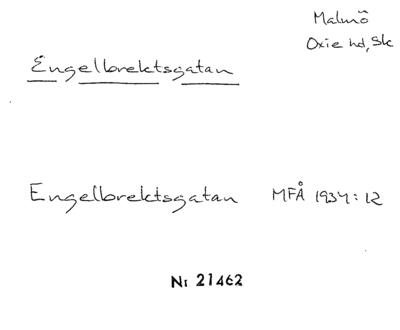 Malmö
Oxie hd, Sk
Engelbrektsgatan
Engelbrektsgatan MFÅ 1937:12
Nr 21462